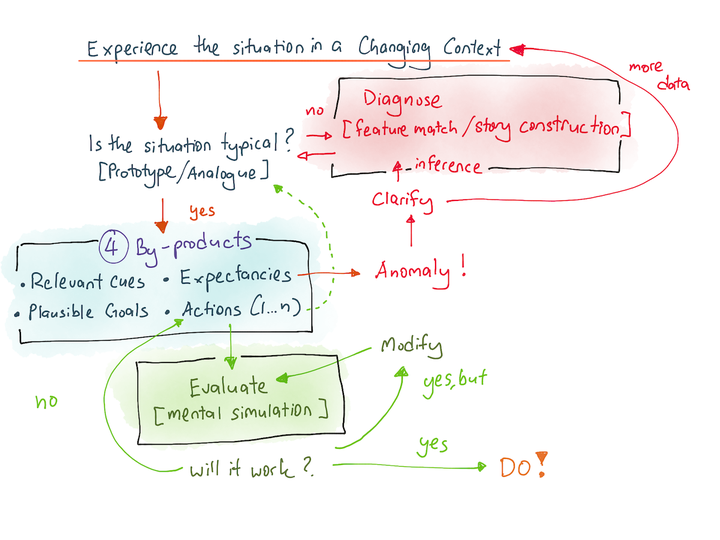 Experience the situation in a Changing Context
more
data
no
Diagnose
[feature match/story construction]
Is the situation typical?
[Prototype/Analogue]
inference
Clarify
yes
④ By-products
• Relevant cues • Expectancies
Anomaly!
• Plausible Goals • Actions (1...n)
Modify
Evaluate
[mental simulation]
yes, but
no
yes
will it work?
DO!